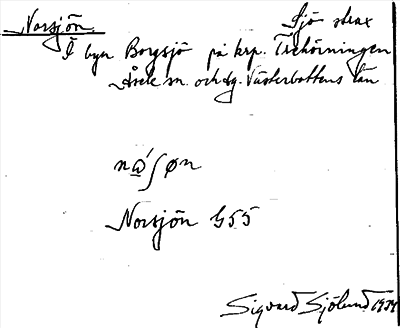 Norsjön. Sjö strax
I byn Borgsjö på krp. Trehörningen
Åsele sn. och dg. Västerbottens län
nώ̲ʃøn
Norsjön G55
Sigvard Sjölund 1934